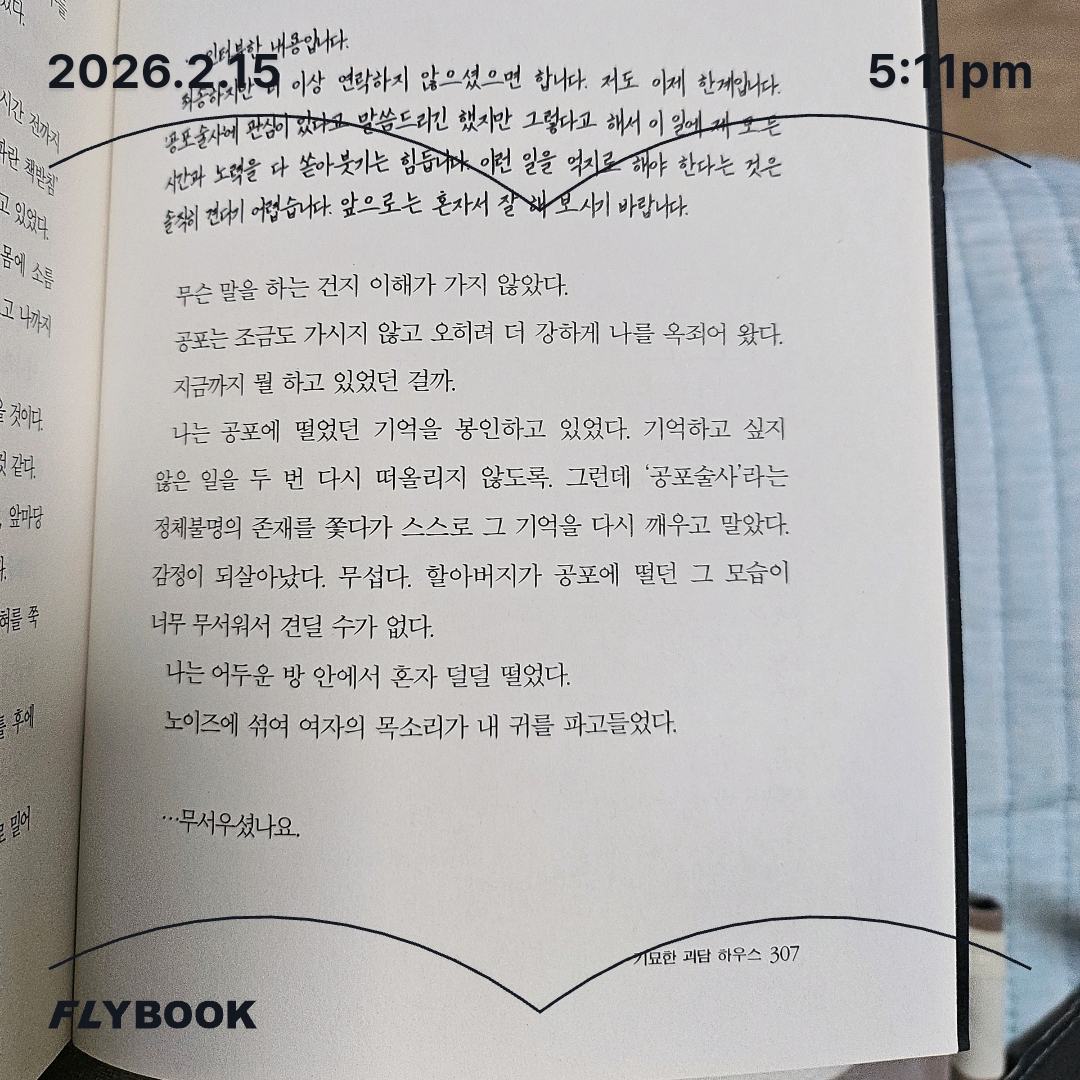 2026.2.15
5:11pm
인터뷰한 내용입니다.
죄송하지만 더 이상 연락하지 않으셨으면 합니다. 저도 이제 한계입니다.
공포술사에 관심이 있다고 말씀드리긴 했지만 그렇다고 해서 이 일에 제 모든
시간과 노력을 다 쏟아붓기는 힘듭니다. 이런 일을 억지로 해야 한다는 것은
솔직히 견디기 어렵습니다. 앞으로는 혼자서 잘 해 보시기 바랍니다.
무슨 말을 하는 건지 이해가 가지 않았다.
공포는 조금도 가시지 않고 오히려 더 강하게 나를 옥죄어 왔다.
지금까지 뭘 하고 있었던 걸까.
나는 공포에 떨었던 기억을 봉인하고 있었다. 기억하고 싶지
않은 일을 두 번 다시 떠올리지 않도록. 그런데 ‘공포술사’라는
정체불명의 존재를 쫓다가 스스로 그 기억을 다시 깨우고 말았다.
감정이 되살아났다. 무섭다. 할아버지가 공포에 떨던 그 모습이
너무 무서워서 견딜 수가 없다.
나는 어두운 방 안에서 혼자 덜덜 떨었다.
노이즈에 섞여 여자의 목소리가 내 귀를 파고들었다.
…무서우셨나요.
기묘한 괴담 하우스 307
FLYBOOK
시간 전까지
파란 책받침
고 있었다.
몸에 소름
고 나까지
을 것이다.
것 같다.
앞마당
혀를 쭉
틀 후에
로 밀어